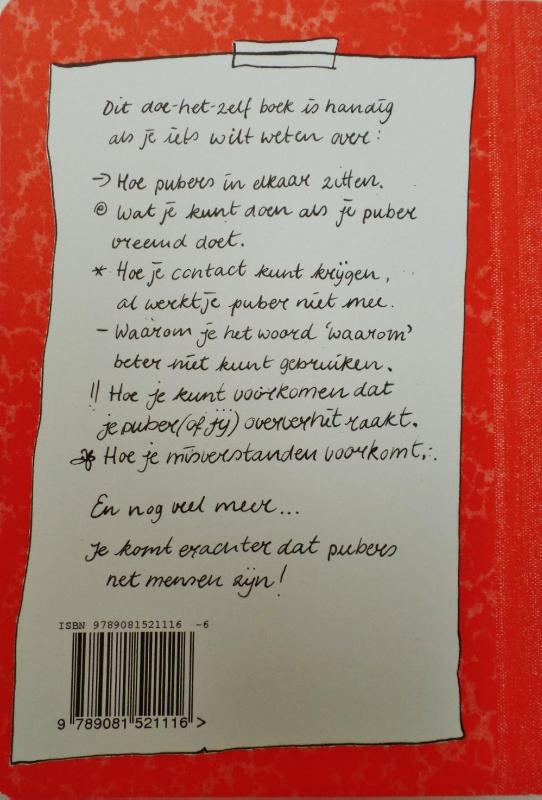 Dit doe-het-zelf boek is handig
als je iets wilt weten over:
→ Hoe pubers in elkaar zitten.
@ Wat je kunt doen als je puber
vreemd doet.
* Hoe je contact kunt krijgen,
al werkt je puber niet mee.
- Waarom je het woord 'waarom'
beter niet kunt gebruiken.
|| Hoe je kunt voorkomen dat
je puber (of jij) oververhit raakt.
* Hoe je misverstanden voorkomt.
En nog veel meer...
Je komt erachter dat pubers
net mensen zijn!
ISBN 9789081521116 -6
9 789081 521116 >